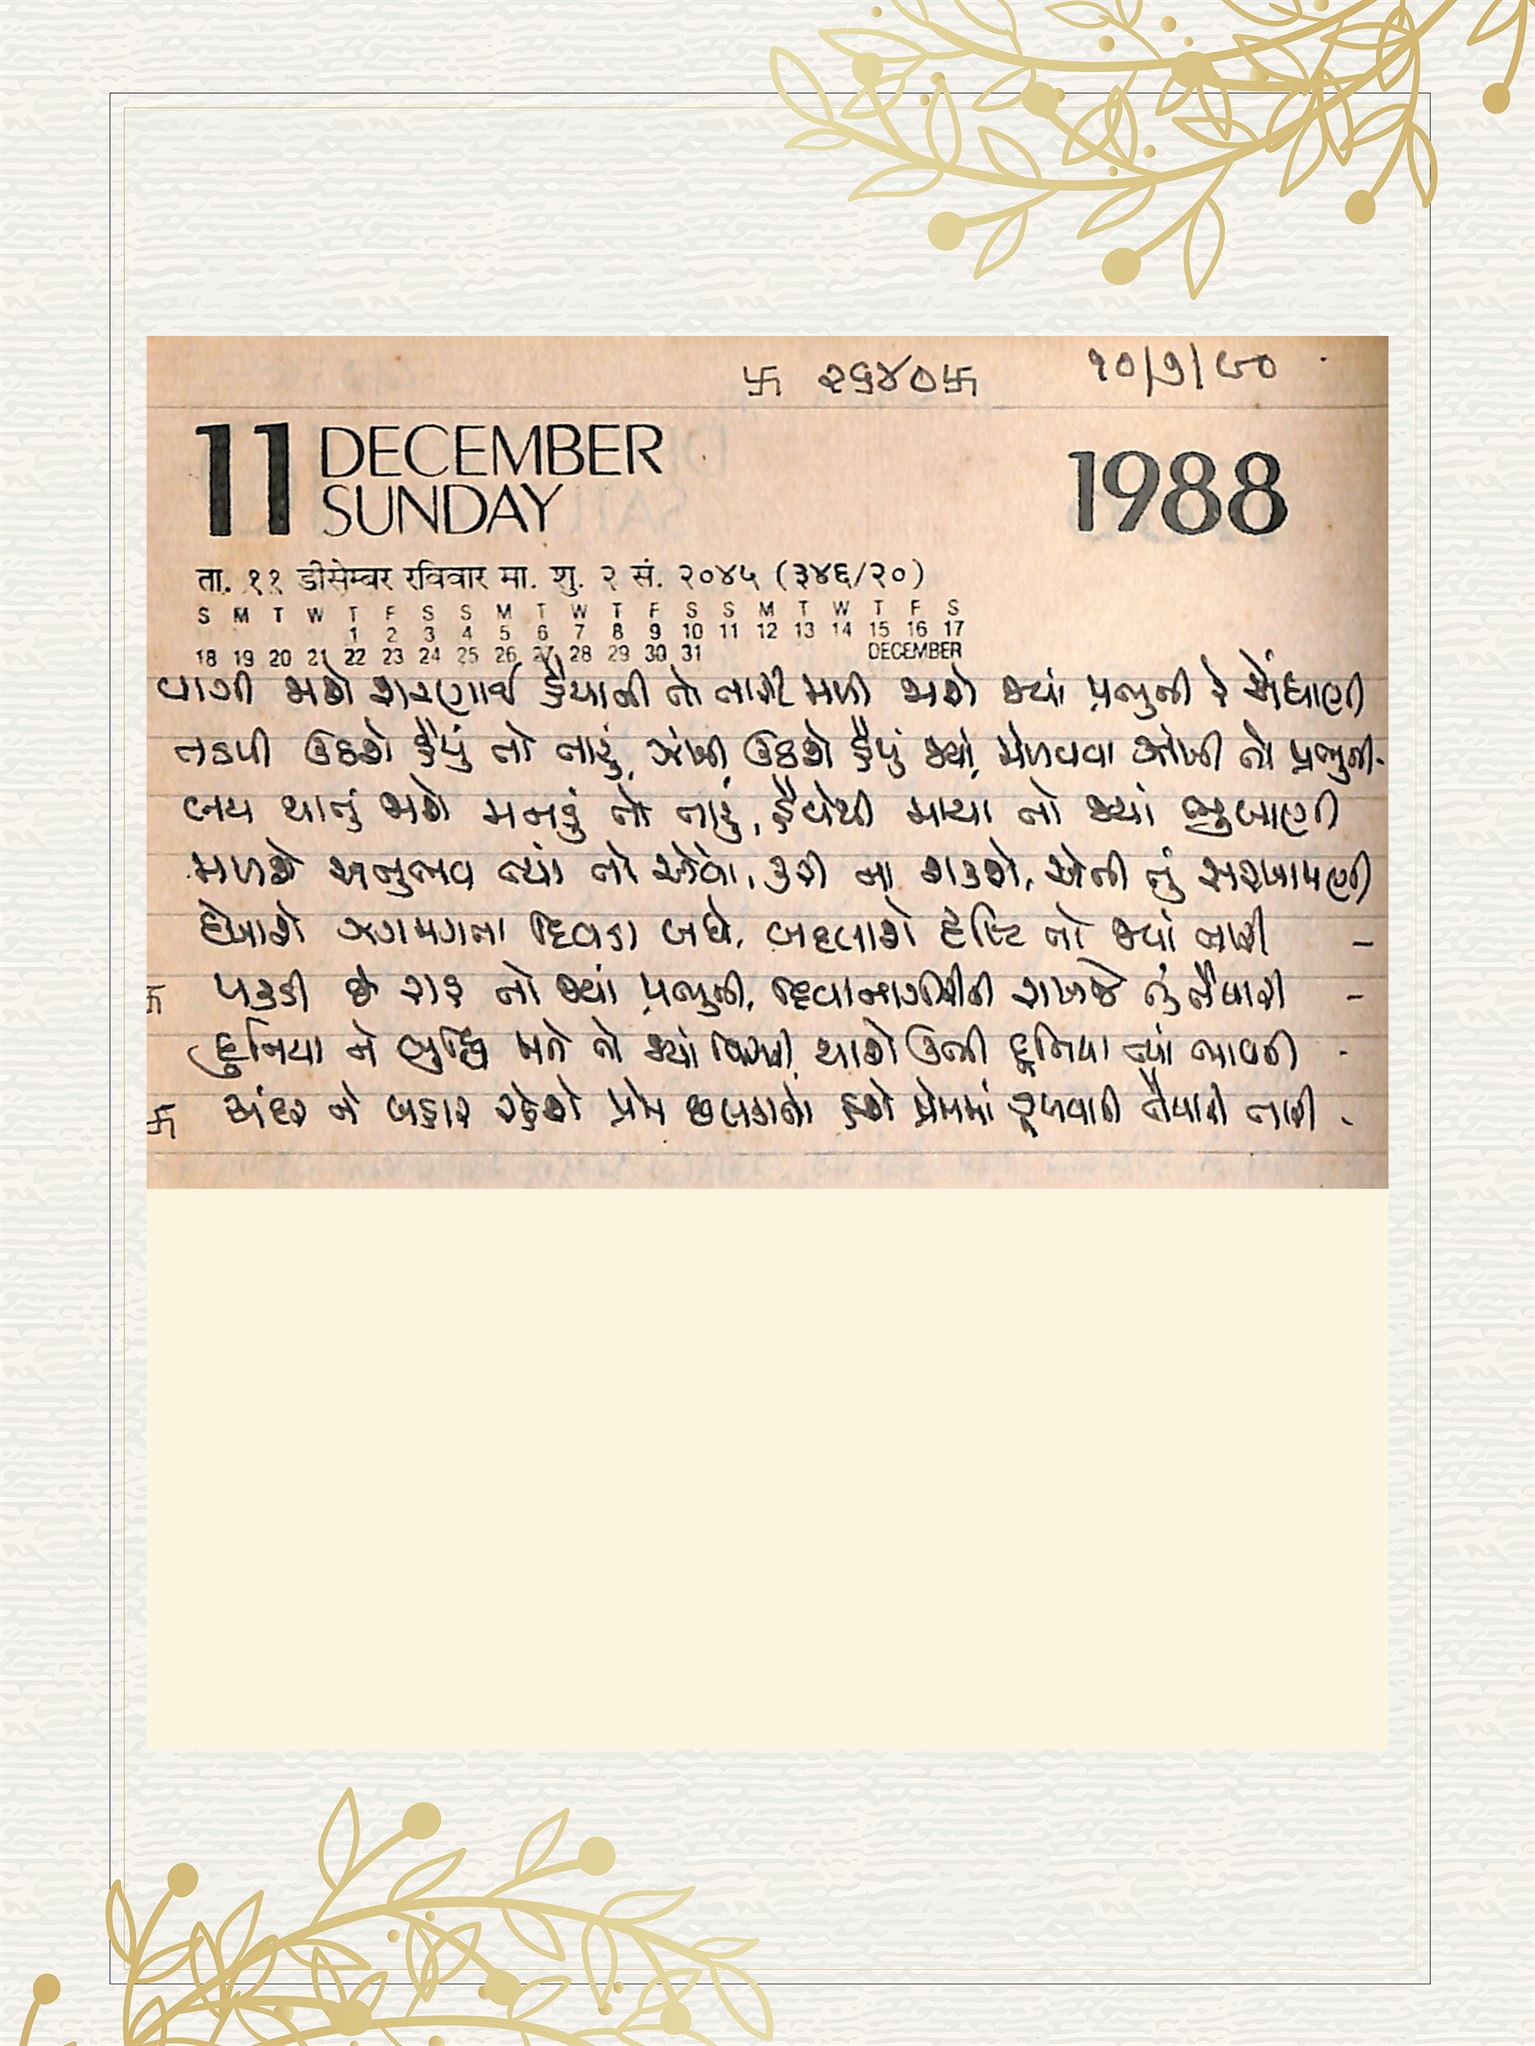 卐 ૨૬૪૦ 卐 ૧૦/૭/૯૦
11 DECEMBER
SUNDAY
1988
ता. ११ डीसेम्बर रविवार मा. शु. २ सं. २०४५ (३४६/२०)
S M T W T F S S M T W T F S S M T W T F S
1 2 3 4 5 6 7 8 9 10 11 12 13 14 15 16 17
18 19 20 21 22 23 24 25 26 27 28 29 30 31 DECEMBER
વાગી જાશે શરણાઈ હૈયાની તો તારી મળી જાશે જ્યાં પ્રભુની રે એંધાણી
તડપી ઉઠશે હૈયું તો તારું, ઝંખી ઉઠશે હૈયું જ્યાં, મેળવવા તો પ્રભુની-
લય થાતું જાશે મનડું તો તારું, હૈયેથી માયા તો જ્યાં ભુલાણી
મળશે અનુભવ ત્યાં તો એવો, કરી ના શકશે, એની તું સરખામણી
દેખાશે ઝગમગતા દિવડા બધે, બદલાશે દૃષ્ટિ તો જ્યાં તારી -
卐 પકડી છે રાહ તો જ્યાં પ્રભુની, રાખજે તું તૈયારી -
દુનિયા ને બુદ્ધિ મતે તો જ્યાં થાશે ઉભી દુનિયા ત્યાં ભાવની -
卐 અંદર ને બહાર રહેશે પ્રેમ છલકાતો હશે પ્રેમમાં તૈયારી તારી -